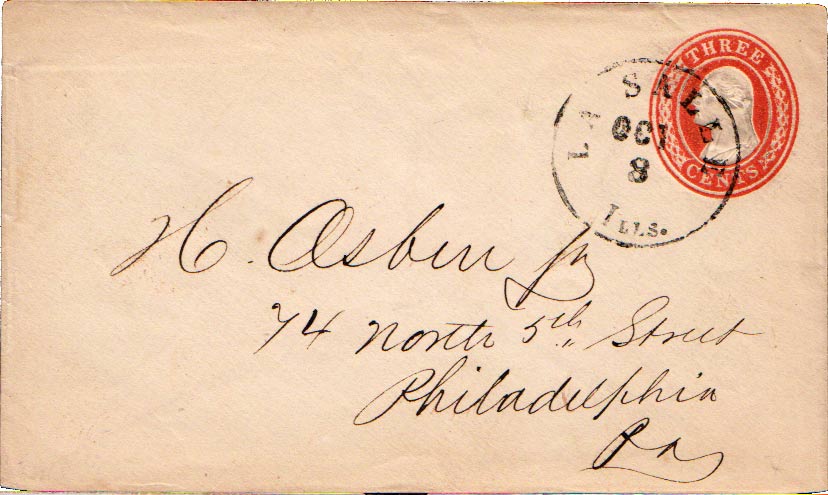 THREE
CENTS
LA SALLE
OCT
8
ILLS.
H. Osbun Jr
74 North 5th Street
Philadelphia
Pa